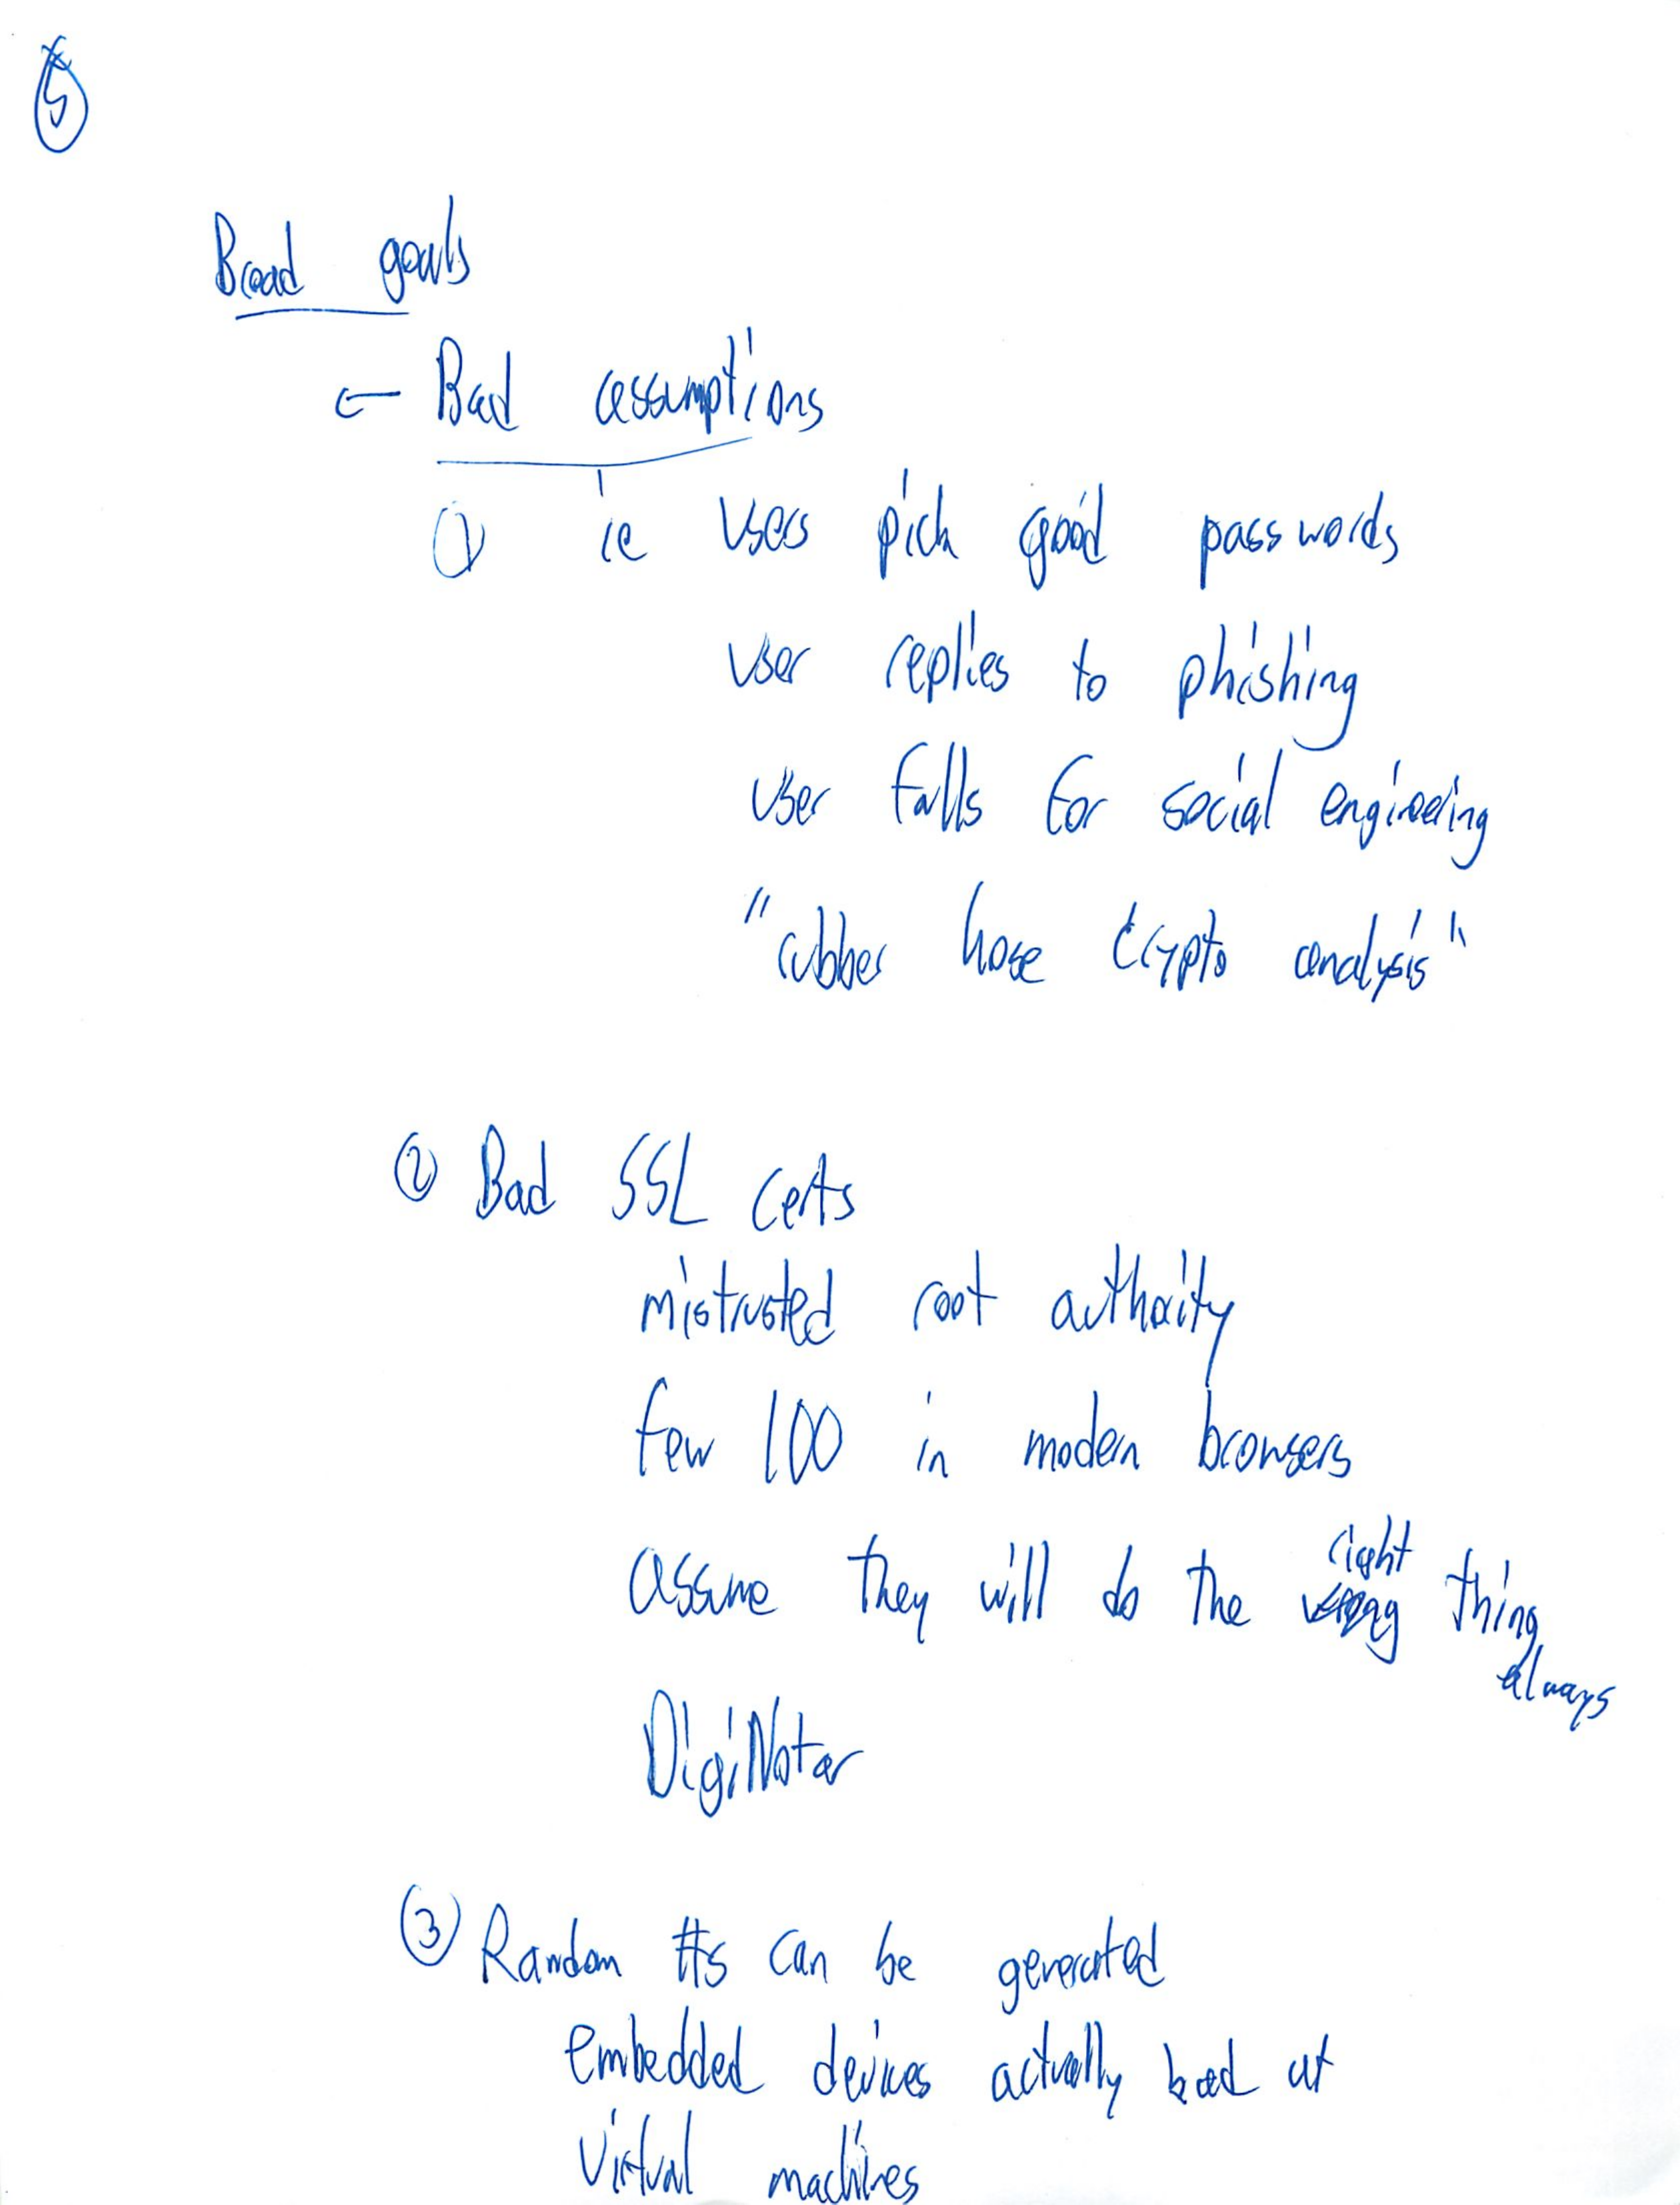 5
Broad goals
- Bad assumptions
① ie users pick good passwords
user replies to phishing
user falls for social engineering
"rubber hose crypto analysis"
② Bad SSL certs
mistrusted root authority
few 100 in modern browsers
right
assume they will do the wrong thing
always
DigiNotar
③ Random #s can be generated
embedded devices actually bad at
Virtual machines